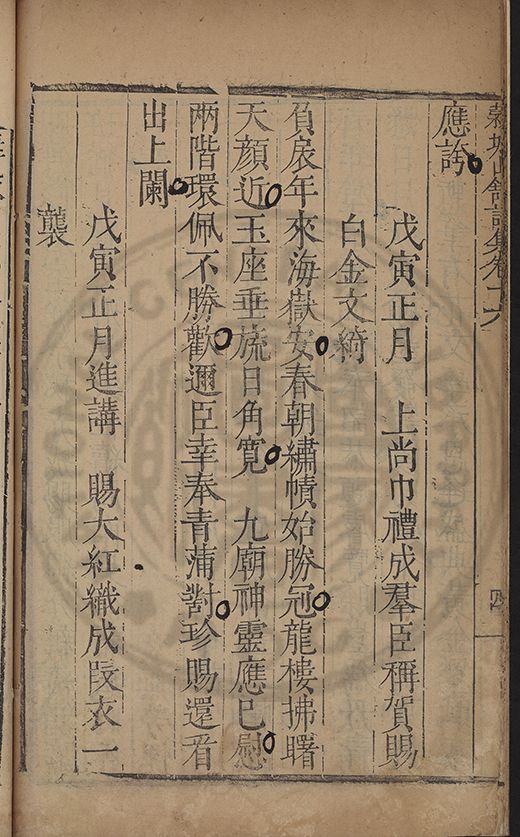 穀城山館詩集卷十六
四
應誇
戊寅正月 上尚巾禮成羣臣稱賀賜
白金文綺
負扆年來海嶽安春朝繡幘始勝冠龍樓拂曙
天顔近玉座垂旒日角寬 九廟神靈應已慰
兩階環佩不勝歡邇臣幸奉青蒲對珍賜還看
出上闌
戊寅正月進講 賜大紅織成段衣一
襲